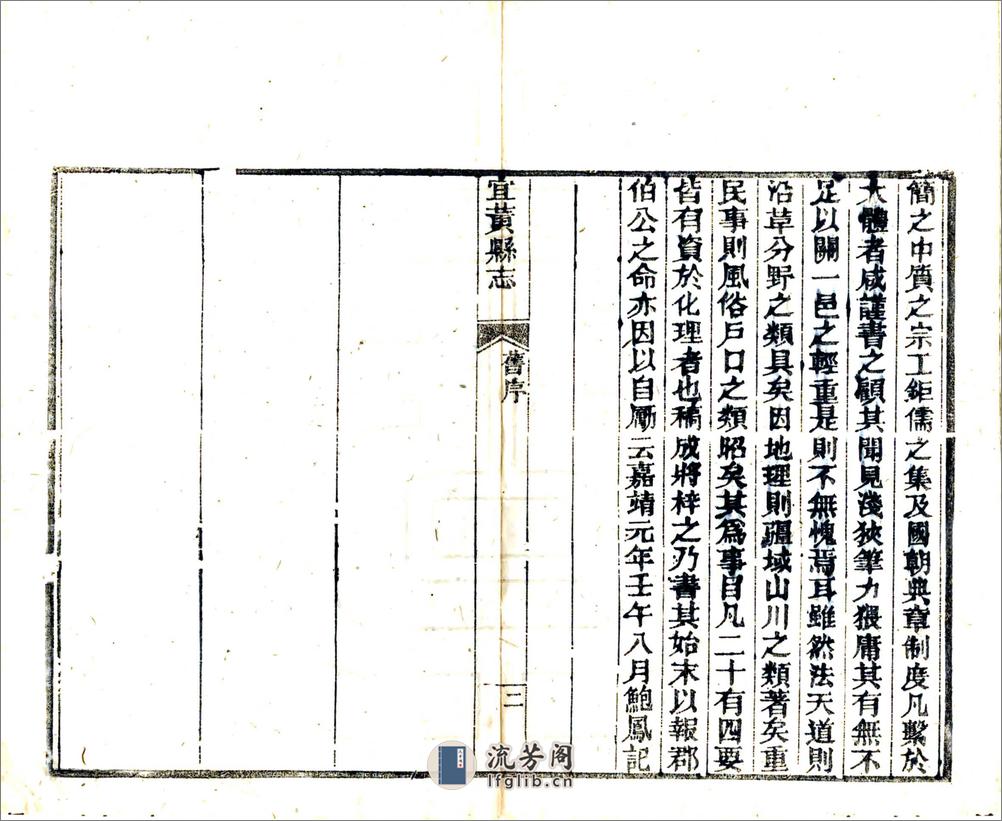 簡之中質之宗工鉅儒之集及國朝典章制度凡繫於
大體者咸謹書之顧其聞見淺狹筆力猥庸其有無不
足以關一邑之輕重是則不無愧焉耳雖然法天道則
沿革分野之類具矣因地理則疆域山川之類著矣重
民事則風俗戶口之類昭矣其爲事目凡二十有四要
皆有資於化理者也稿成將梓之乃書其始末以報郡
伯公之命亦因以自勵云嘉靖元年壬午八月鮑鳳記
宜黃縣志
舊序
二
流芳阁
lfglib.cn